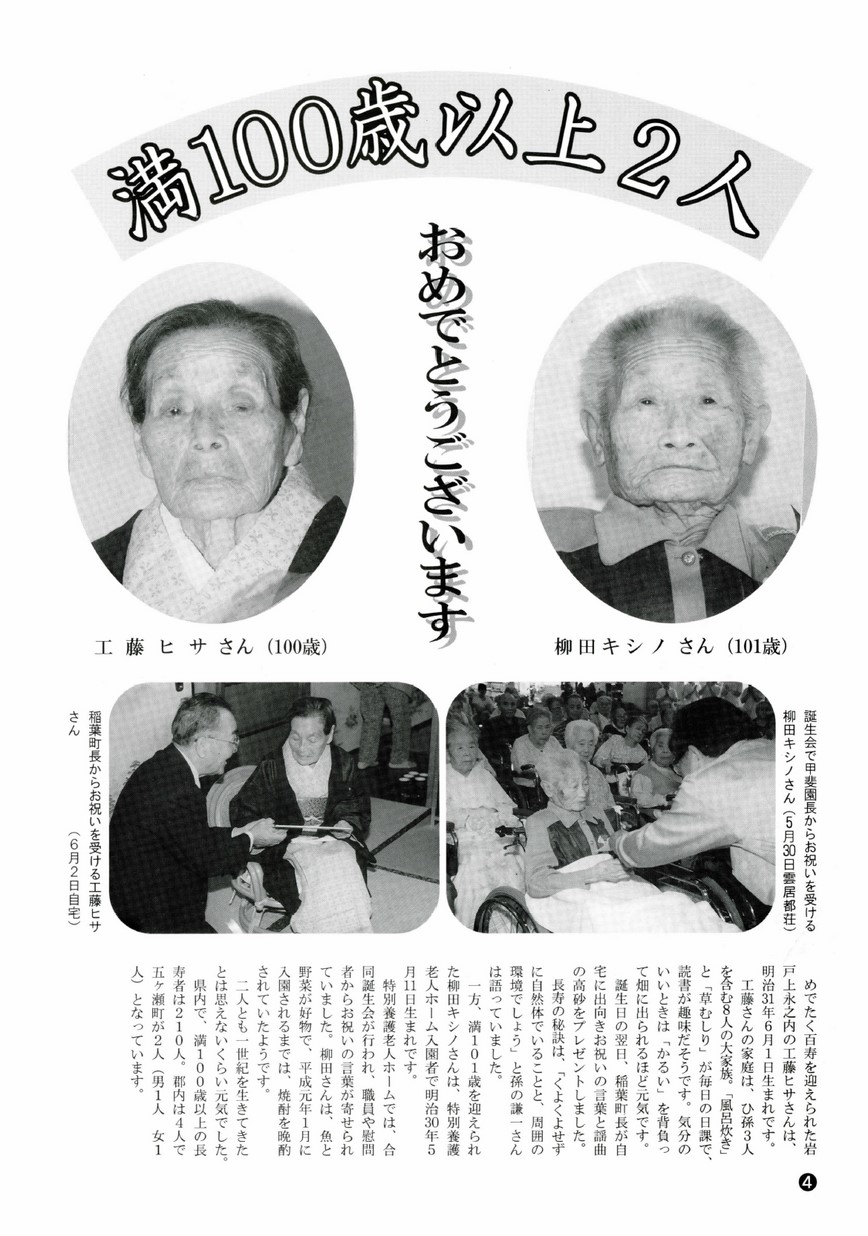 満100歳以上2人
おめでとうございます
工藤ヒサさん（100歳）
柳田キシノさん（101歳）
誕生会で甲斐園長からお祝いを受ける
柳田キシノさん（5月30日雲居都荘）
稲葉町長からお祝いを受ける工藤ヒサ
さん　（6月2日自宅）
めでたく百寿を迎えられた岩
戸上永之内の工藤ヒサさんは、
明治31年6月1日生まれです。
工藤さんの家庭は、ひ孫3人
を含む8人の大家族。「風呂炊き」
と「草むしり」が毎日の日課で、
読書が趣味だそうです。気分の
いいときは「かるい」を背負っ
て畑に出られるほど元気です。
誕生日の翌日、稲葉町長が自
宅に出向きお祝いの言葉と謡曲
の高砂をプレゼントしました。
長寿の秘訣は、「くよくよせず
に自然体でいることと、周囲の
環境でしょう」と孫の謙一さん
は語っていました。
一方、満101歳を迎えられ
た柳田キシノさんは、特別養護
老人ホーム入園者で明治30年5
月11日生まれです。
特別養護老人ホームでは、合
同誕生会が行われ、職員や慰問
者からお祝いの言葉が寄せられ
ていました。柳田さんは、魚と
野菜が好物で、平成元年1月に
入園されるまでは、焼酎を晩酌
されていたようです。
二人とも一世紀を生きてきた
とは思えないくらい元気でした。
県内で、満100歳以上の長
寿者は210人。郡内は4人で
五ヶ瀬町が2人（男1人　女1
人）となっています。
4